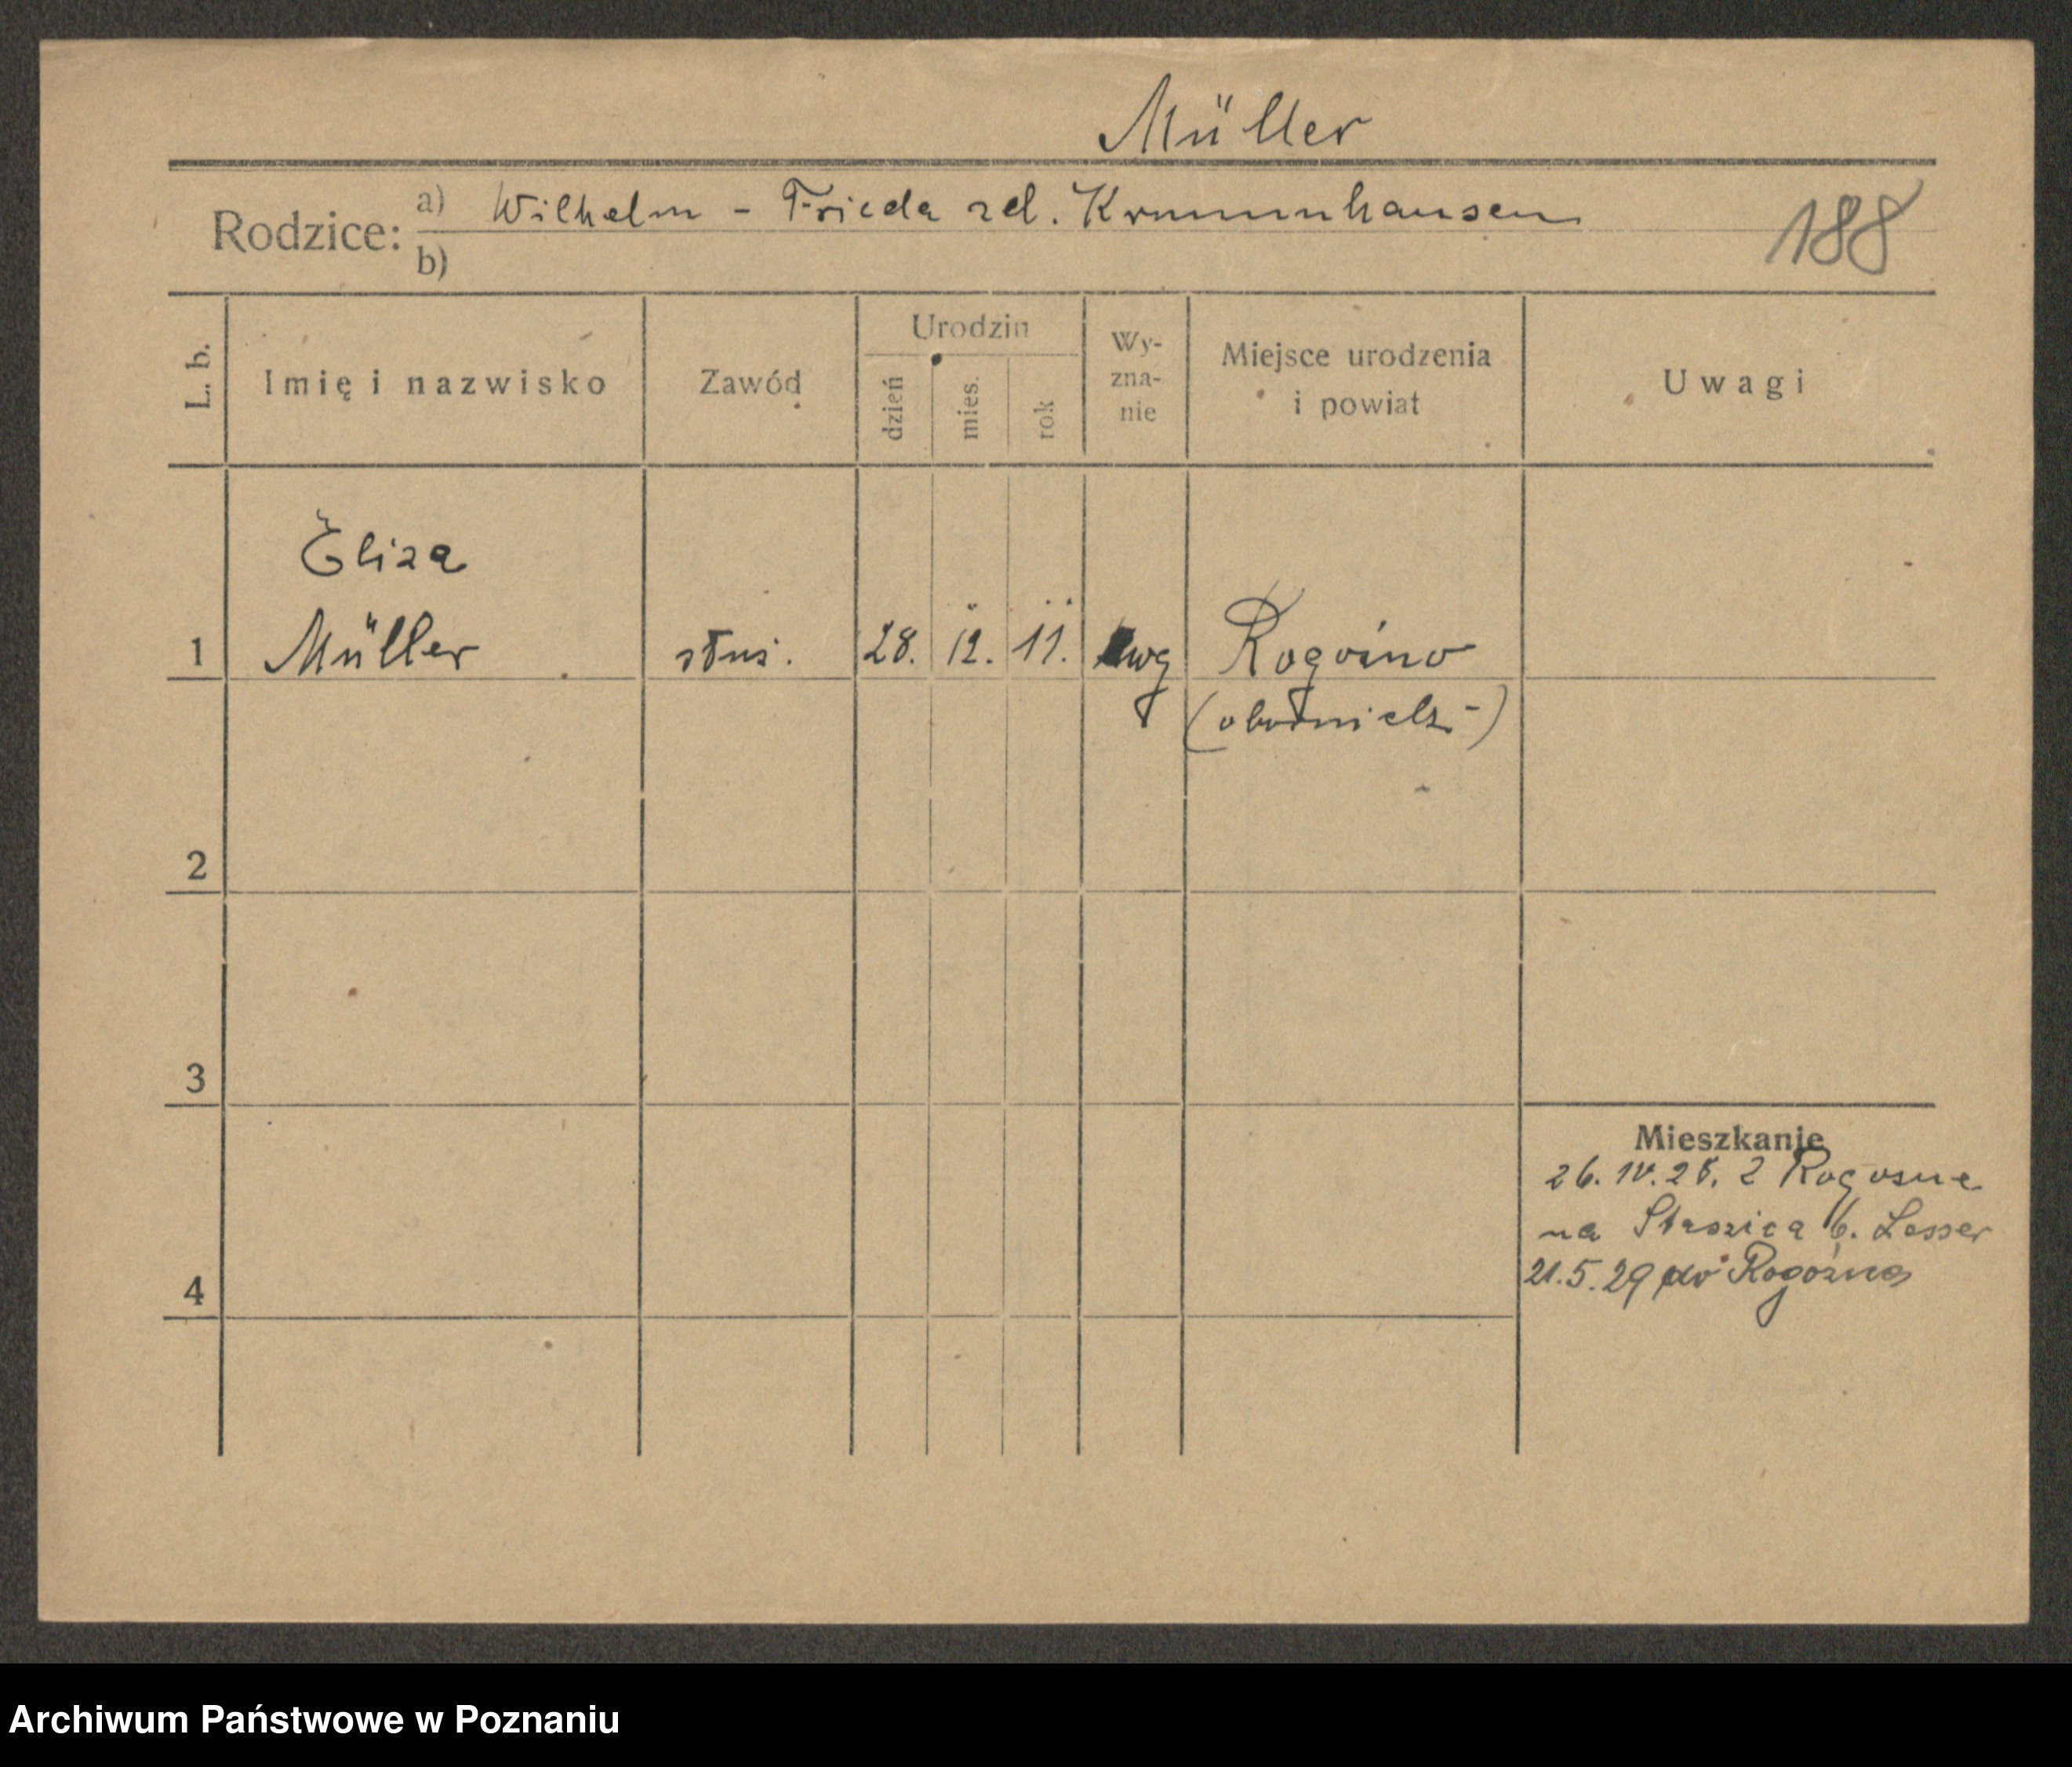 Müller
Rodzice: a) Wilhelm - Frieda zd. Krummhausen
b)
188
L. b. Imię i nazwisko Zawód Urodzin dzień mies. rok Wyznanie Miejsce urodzenia i powiat Uwagi
Eliza
1 Müller służ. 28. 12. 11. ewg Rogoźno
(obornicki-)
2
3
Mieszkanie
26. IV. 28. z Rogoźna
na Staszica 6. Lesser
21.5.29 do Rogoźna
4
Archiwum Państwowe w Poznaniu